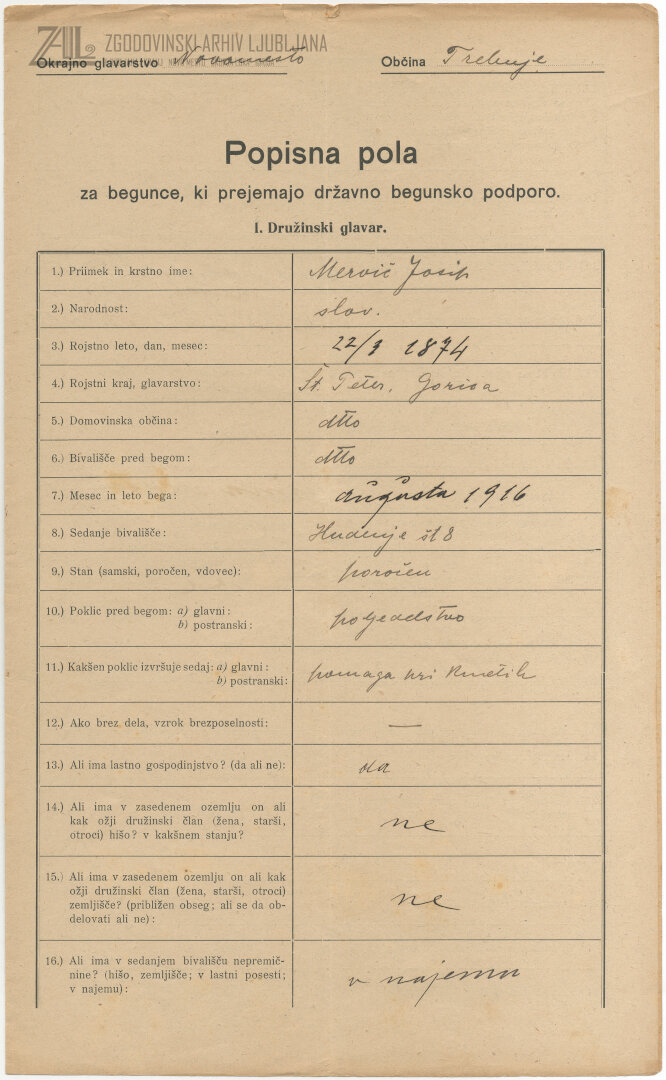 ZAL ZGODOVINSKI ARHIV LJUBLJANA
Okrajno glavarstvo Novomesto Občina Trebnje
Popisna pola
za begunce, ki prejemajo državno begunsko podporo.
I. Družinski glavar.
1.) Priimek in krstno ime: Mervič Josip
2.) Narodnost: slov.
3.) Rojstno leto, dan, mesec: 1874
4.) Rojstni kraj, glavarstvo: Št. Peter, Gorica
5.) Domovinska občina: dtto
6.) Bivališče pred begom: dtto
7.) Mesec in leto bega: avgusta 1916
8.) Sedanje bivališče: Hudenje št 8
9.) Stan (samski, poročen, vdovec): poročen
10.) Poklic pred begom: a) glavni: poljedelstvo
b) postranski:
11.) Kakšen poklic izvršuje sedaj: a) glavni: pomaga pri kmetih
b) postranski:
12.) Ako brez dela, vzrok brezposelnosti: —
13.) Ali ima lastno gospodinjstvo? (da ali ne): da
14.) Ali ima v zasedenem ozemlju on ali
kak ožji družinski član (žena, starši,
otroci) hišo? v kakšnem stanju?
ne
15.) Ali ima v zasedenem ozemlju on ali kak
ožji družinski član (žena, starši, otroci)
zemljišče? (približen obseg; ali se da ob-
delovati ali ne):
ne
16.) Ali ima v sedanjem bivališču nepremič-
nine? (hišo, zemljišče; v lastni posesti;
v najemu):
v najemu